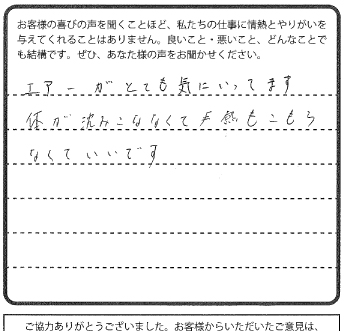 お客様の喜びの声を聞くことほど、私たちの仕事に情熱とやりがいを
与えてくれることはありません。良いこと・悪いこと、どんなことで
も結構です。ぜひ、あなた様の声をお聞かせください。
エアーがとても気にいってます
体が沈みこなくて 熱もこもら
なくていいです
ご協力ありがとうございました。お客様からいただいたご意見は、